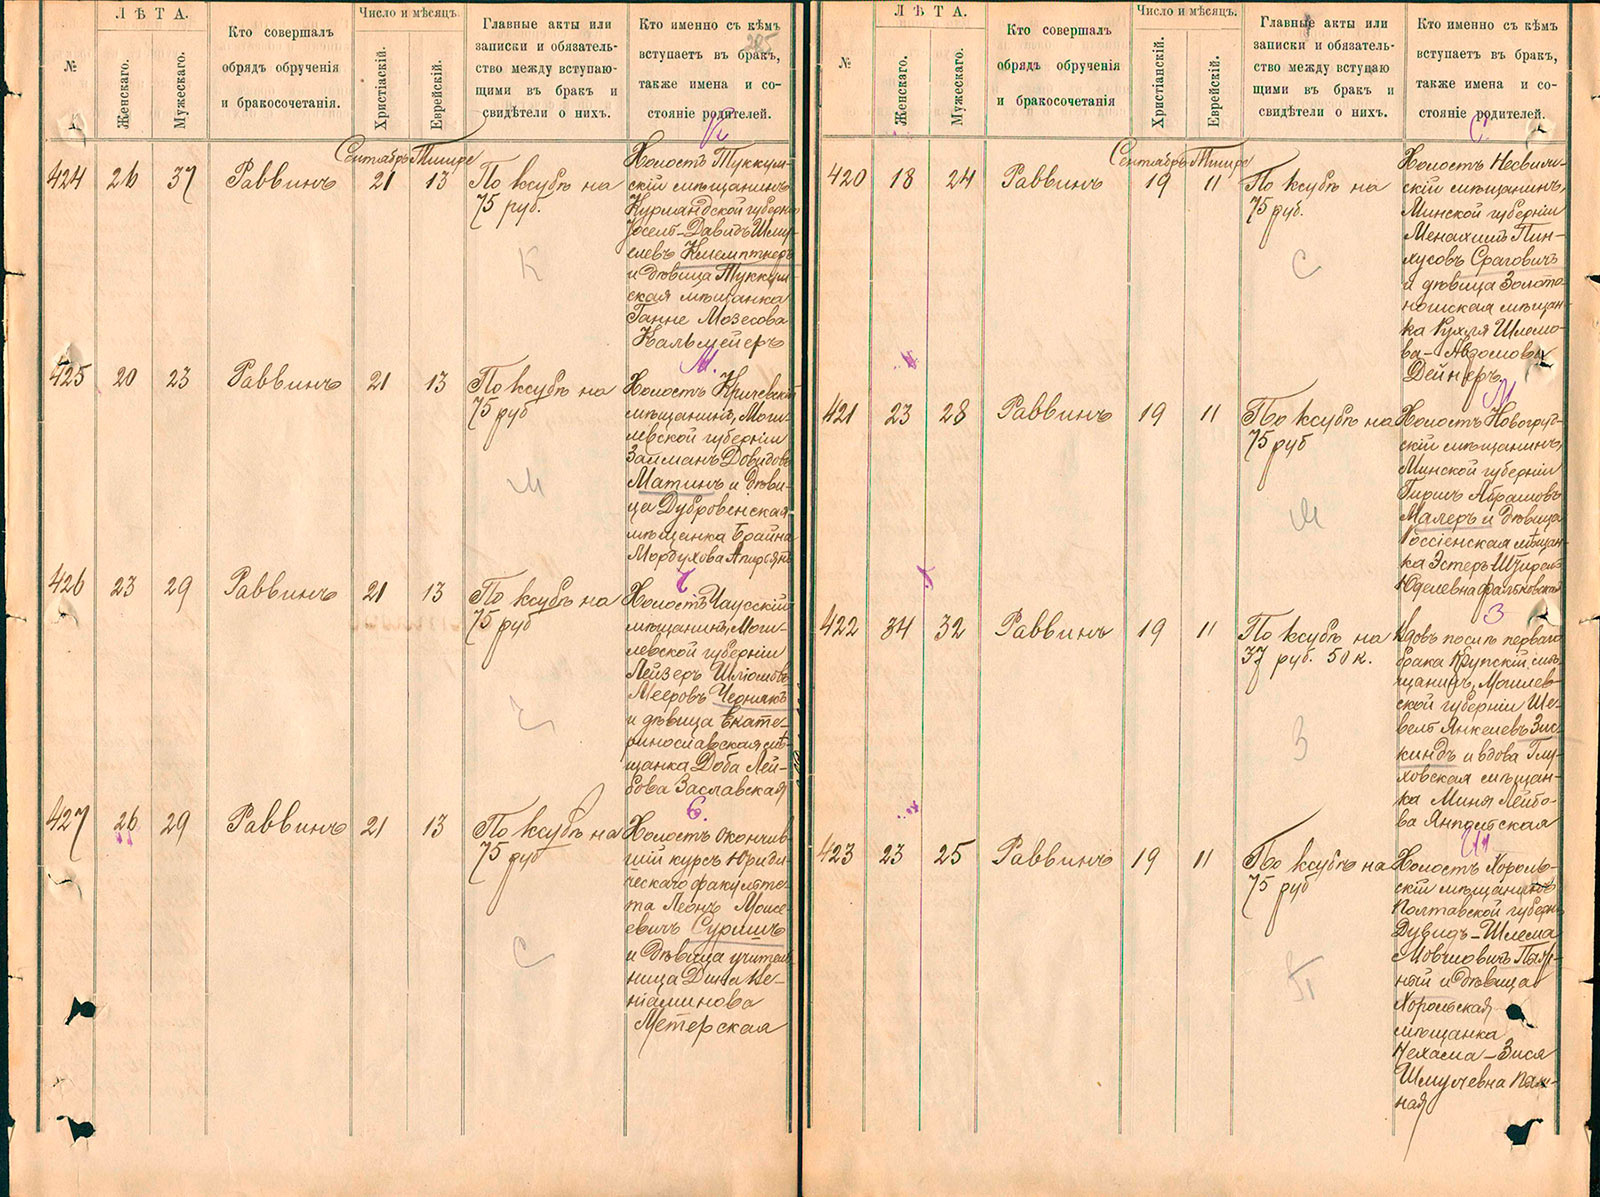 ЛѢТА.
Число и мѣсяцъ
№
Женскаго.
Мужескаго.
Кто совершалъ
обрядъ обрученія
и бракосочетанія.
Христіаскій.
Еврейскій.
Главные акты или
записки и обязатель-
ство между вступаю-
щими въ бракъ и
свидѣтели о нихъ.
Кто именно съ кѣмъ
вступаетъ въ бракъ,
также имена и со-
стояніе родителей.
Сентябрь Тишре
424 26 37 Раввинъ 21 13
По ксубѣ на
75 руб.
К
Холостъ Туккум-
скій мѣщанинъ
Курляндской губерн
Іосель-Давидъ Шму-
левъ
и дѣвица Туккум-
ская мѣщанка
Ганне Мозесова
Кальмейеръ
425 20 23 Раввинъ 21 13
По ксубѣ на
75 руб
М
М.
Холостъ Кричевскій
мѣщанинъ, Моги-
левской губерніи
Залманъ Довидовъ
Матинъ и дѣви-
ца Дубровенская
мѣщанка Брайна
Мордухова
426 23 29 Раввинъ 21 13
По ксубѣ на
75 руб
Ч
Ч
Холостъ Чаусскій
мѣщанинъ, Моги-
левской губерніи
Лейзеръ Шліомовъ
Мееровъ Чернякъ
и дѣвица Екате-
ринославская мѣ-
щанка Доба Лей-
бова Заславская
427 26 29 Раввинъ 21 13
По ксубѣ на
75 руб
С
С.
Холостъ окончив
шій курсъ Юриди-
ческаго факульте-
та Леонъ Моисе-
евичъ Сурмичъ
и дѣвица учитель
ница Дина Ве-
ніаминова
Метерская
ЛѢТА.
Число и мѣсяцъ.
№
Женскаго.
Мужескаго.
Кто совершалъ
обрядъ обрученія
и бракосочетанія
Христіанскій.
Еврейскій.
Главные акты или
записки и обязатель-
ство между вступаю
щими въ бракъ и
свидѣтели о нихъ.
Кто именно съ кѣмъ
вступаетъ въ бракъ,
также имена и со-
стояніе родителей.
Сентябрь Тишре
420 18 24 Раввинъ 19 11
По ксубѣ на
75 руб.
С
С
Холостъ
скій мѣщанинъ,
Минской губерніи
Менахимъ Пин-
хусовъ Сраговичъ
и дѣвица Золото
ношская мѣщан-
ка Рухля Шлемо-
ва-Авзомовы
Дейнеръ
421 23 28 Раввинъ 19 11
По ксубѣ на
75 руб
М
М
Холостъ Новогруд-
скій мѣщанинъ,
Минской губерніи
Гиршъ Абрамовъ
Малеръ и дѣвица
Россіенская мѣщан-
ка Эстеръ
Юделевна Фальковская
422 34 32 Раввинъ 19 11
По ксубѣ на
37 руб. 50 к.
З
З
Вдовъ послѣ перваго
брака Крупскій мѣ-
щанинъ, Могилев-
ской губерніи Ше-
вель Янкелевъ Зис-
киндъ и вдова Глу-
ховская мѣщан-
ка Миня Лейбо-
ва Янпольская
423 23 25 Раввинъ 19 11
По ксубѣ на
75 руб
П
Холостъ Хороль-
скій мѣщанинъ
Полтавской губерн
Дувидъ-Шлема
Мовшовичъ
и дѣвица
Хорольская
мѣщанка
Нехама-Зися
Шмулевна
ная